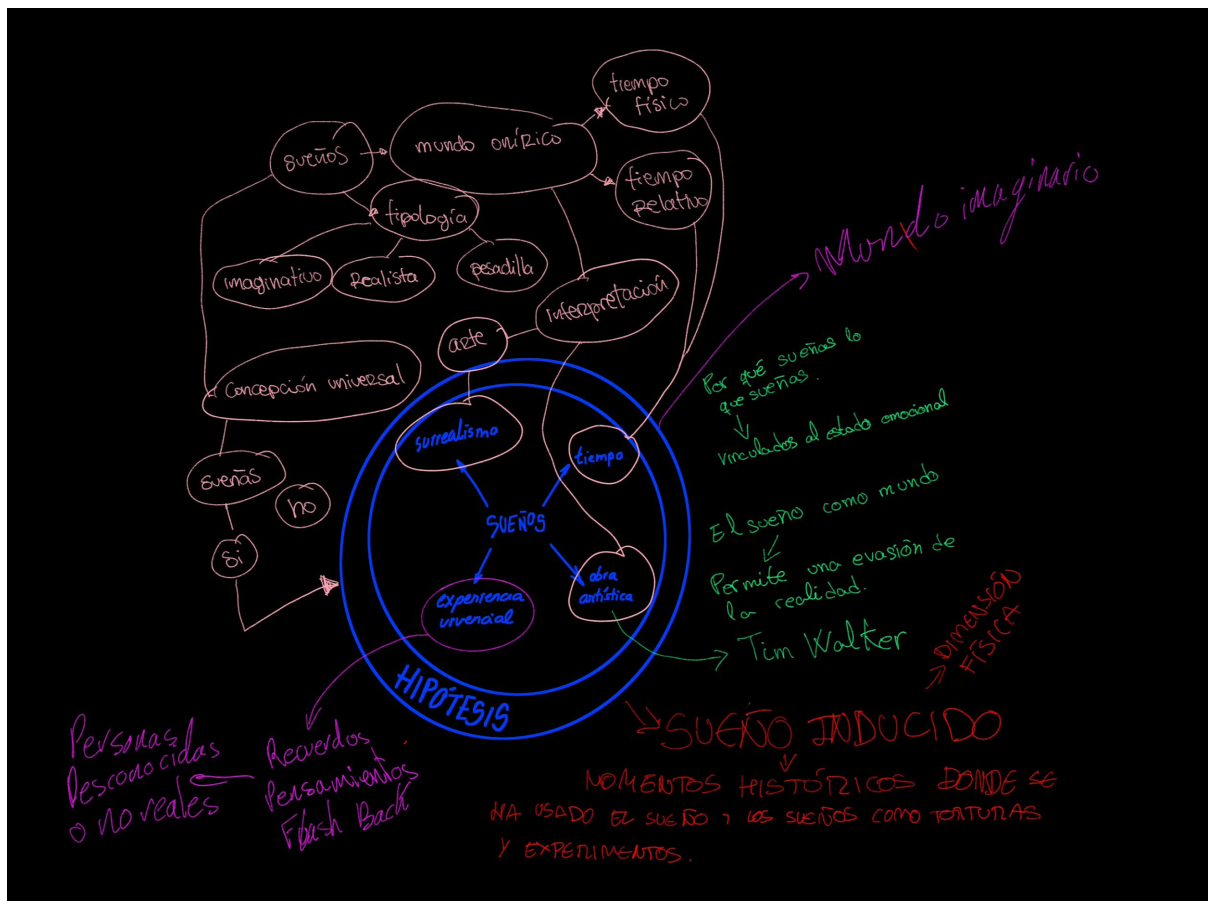 tiempo
físico
sueños
mundo onírico
tiempo
relativo
tipología
imaginativo
Realista
pesadilla
interpretación
arte
Concepción universal
surrealismo
tiempo
sueñas
no
si
SUEÑOS
experiencia
vivencial
obra
artística
HIPÓTESIS
Mundo imaginario
Por qué sueñas lo
que sueñas.
vinculados al estado emocional
El sueño como mundo
Permite una evasión de
la realidad.
Tim Walker
DIMENSIÓN
FÍSICA
SUEÑO INDUCIDO
MOMENTOS HISTÓRICOS DONDE SE
HA USADO EL SUEÑO Y LOS SUEÑOS COMO TORTURAS
Y EXPERIMENTOS.
Recuerdos
Pensamientos
Flash Back
Personas
Desconocidas
o no reales